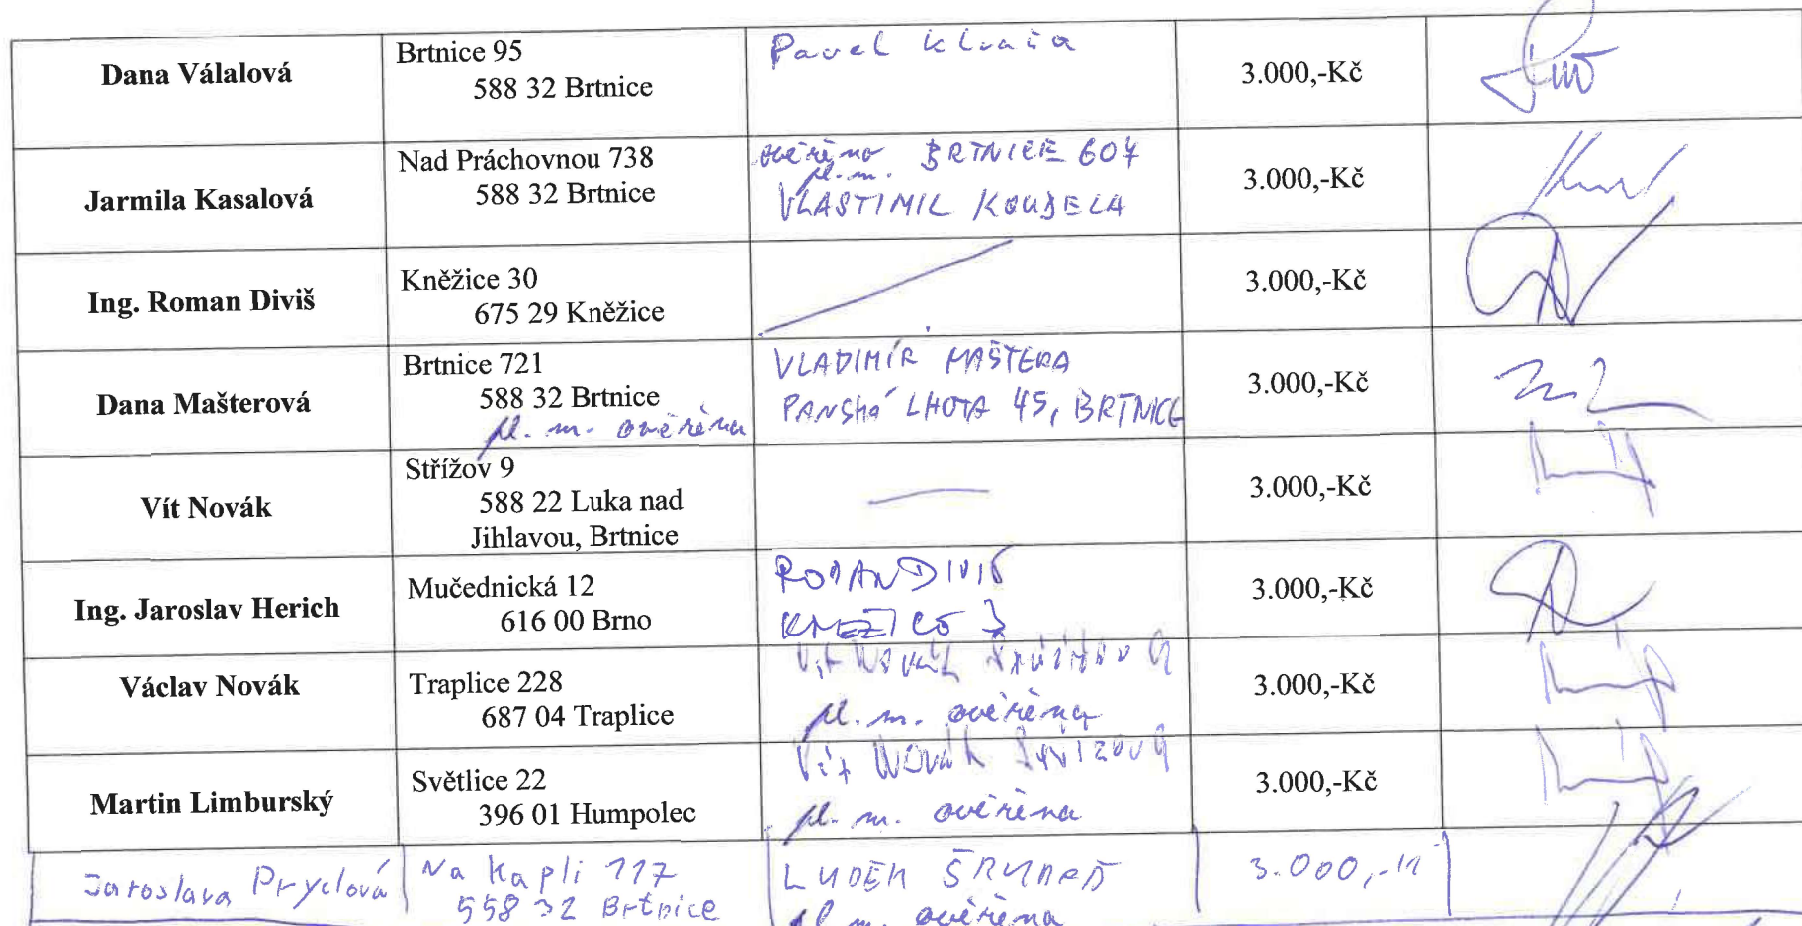 Dana Válalová
Brtnice 95
588 32 Brtnice
Pavel
3.000,-Kč
Jarmila Kasalová
Nad Práchovnou 738
588 32 Brtnice
ověřeno BRTNICE 604
pl. m.
VLASTIMIL KOUDELA
3.000,-Kč
Ing. Roman Diviš
Kněžice 30
675 29 Kněžice
3.000,-Kč
Dana Mašterová
Brtnice 721
588 32 Brtnice
pl. m. ověřena
VLADIMÍR MAŠTERA
PANSKÁ LHOTA 45, BRTNICE
3.000,-Kč
Vít Novák
Střížov 9
588 22 Luka nad
Jihlavou, Brtnice
3.000,-Kč
Ing. Jaroslav Herich
Mučednická 12
616 00 Brno
ROMAN DIVIŠ
3.000,-Kč
Václav Novák
Traplice 228
687 04 Traplice
Vít Novák Střížov 9
pl. m. ověřena
3.000,-Kč
Martin Limburský
Světlice 22
396 01 Humpolec
Vít Novák Střížov 9
pl. m. ověřena
3.000,-Kč
Jaroslava Pryclová
Na Kapli 117
558 32 Brtnice
LUDĚK
pl. m. ověřena
3.000,-